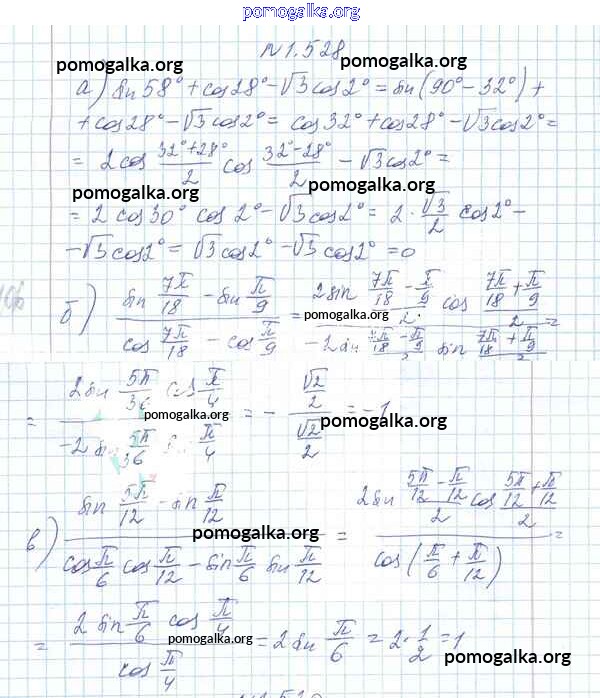 pomogalka.org
N 1.528
pomogalka.org pomogalka.org
а) sin 58° + cos 28° − √3 cos 2° = sin(90° − 32°) +
+ cos 28° − √3 cos 2° = cos 32° + cos 28° − √3 cos 2° =
= 2 cos (32° + 28°)/2 cos (32° − 28°)/2 − √3 cos 2° =
pomogalka.org pomogalka.org
= 2 cos 30° cos 2° − √3 cos 2° = 2 · √3/2 cos 2° −
− √3 cos 2° = √3 cos 2° − √3 cos 2° = 0
pomogalka.org
б) (sin 7π/18 − sin π/9)/(cos 7π/18 − cos π/9) = (2 sin (7π/18 − π/9)/2 cos (7π/18 + π/9)/2)/(−2 sin (7π/18 − π/9)/2 sin (7π/18 + π/9)/2) =
pomogalka.org pomogalka.org
= (2 sin 5π/36 cos π/4)/(−2 sin 5π/36 sin π/4) = − (√2/2)/(√2/2) = −1
pomogalka.org pomogalka.org
в) (sin 5π/12 − sin π/12)/(cos π/6 cos π/12 − sin π/6 sin π/12) = (2 sin (5π/12 − π/12)/2 cos (5π/12 + π/12)/2)/(cos(π/6 + π/12))
pomogalka.org
= (2 sin π/6 cos π/4)/(cos π/4) = 2 sin π/6 = 2 · 1/2 = 1
pomogalka.org pomogalka.org